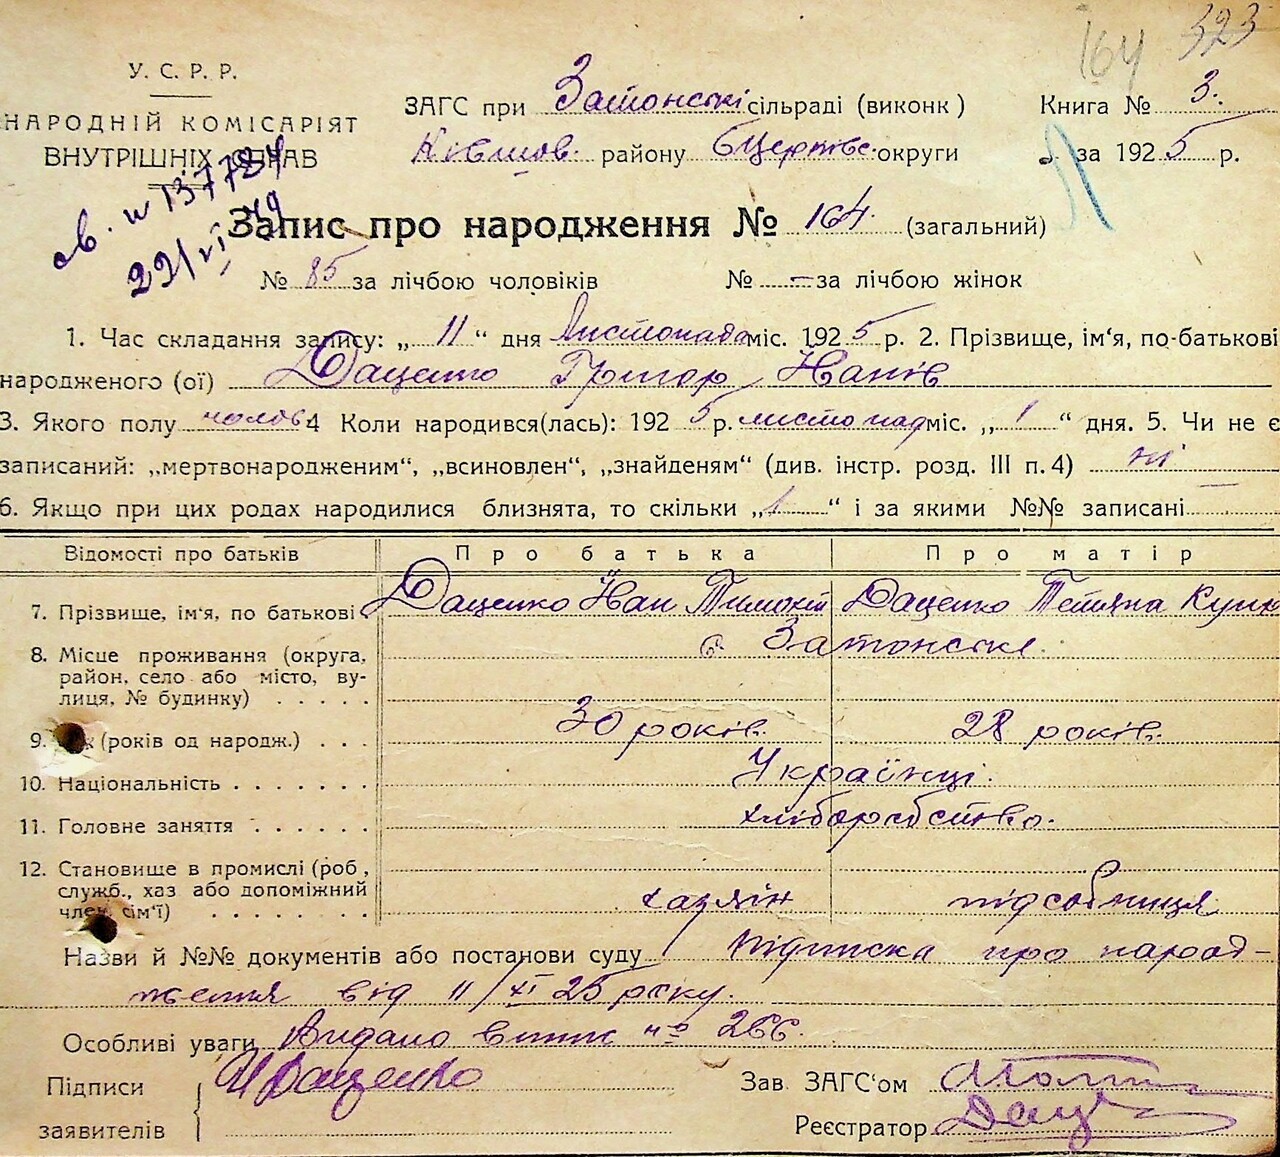 164 323
У. С. Р. Р.
НАРОДНІЙ КОМІСАРІЯТ
ВНУТРІШНІХ СПРАВ
ЗАГС при Затонські сільраді (виконк)
району БЦерківс. округи
Книга № 3.
за 1925 р.
св. 137784
22/VI 49
Запис про народження № 164. (загальний)
№ 85 за лічбою чоловіків № — за лічбою жінок
1. Час складання запису: „ 11 “ дня Листопада міс. 1925 р. 2. Прізвище, ім‘я, по-батькові
народженого (ої) Даценко Григор Іванів
3. Якого полу чолов 4 Коли народився(лась): 1925 р. листопад міс. „ 1 “ дня. 5. Чи не є
записаний: „мертвонародженим“, „всиновлен“, „знайденям“ (див. інстр. розд. III п. 4) ні
6. Якщо при цих родах народилися близнята, то скільки „ 1 “ і за якими №№ записані
Відомості про батьків Про батька Про матір
7. Прізвище, ім‘я, по батькові Даценко Іван Тимохій Даценко Тетяна
8. Місце проживання (округа, с. Затонське.
район, село або місто, ву-
лиця, № будинку)
9. (років од народж.) 30 років. 28 років.
10. Національність Українці.
11. Головне заняття хліборобство.
12. Становище в промислі (роб,
служб., хаз або допоміжний
член сім‘ї) хазяїн підсобниця
Назви й №№ документів або постанови суду Підписка про народ-
ження від 11/XI 25 року.
Особливі уваги Видано витяг № 266.
Підписи И Даценко Зав ЗАГС‘ом
заявителів Реєстратор